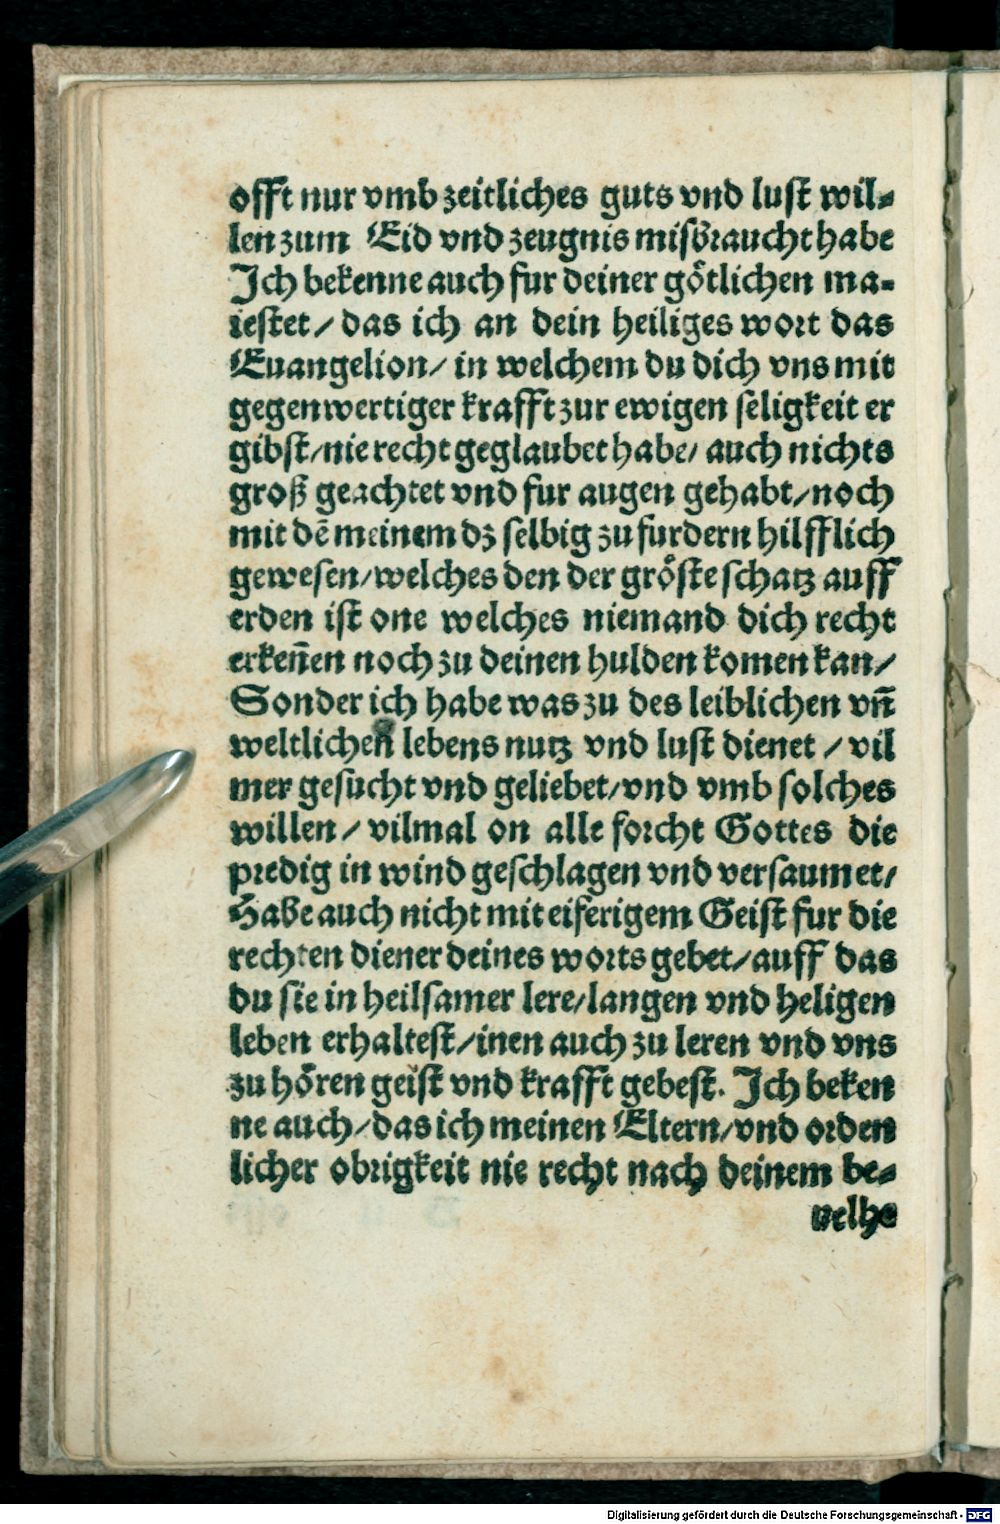 offt nur vmb zeitliches guts vnd lust wil-
len zum Eid vnd zeugnis misbraucht habe
Ich bekenne auch fur deiner götlichen ma-
iestet/ das ich an dein heiliges wort das
Euangelion/ in welchem du dich vns mit
gegenwertiger krafft zur ewigen seligkeit er
gibst/ nie recht geglaubet habe/ auch nichts
groß geachtet vnd fur augen gehabt/ noch
mit dē meinem dz selbig zu furdern hilfflich
gewesen/ welches den der gröste schatz auff
erden ist one welches niemand dich recht
erkeñen noch zu deinen hulden komen kan/
Sonder ich habe was zu des leiblichen vñ
weltlichen lebens nutz vnd lust dienet / vil
mer gesucht vnd geliebet/ vnd vmb solches
willen/ vilmal on alle forcht Gottes die
predig in wind geschlagen vnd versaumet/
Habe auch nicht mit eiferigem Geist fur die
rechten diener deines worts gebet/ auff das
du sie in heilsamer lere/ langen vnd heligen
leben erhaltest/ inen auch zu leren vnd vns
zu hören geist vnd krafft gebest. Ich beken
ne auch/ das ich meinen Eltern/ vnd orden
licher obrigkeit nie recht nach deinem be-
uelhe
Digitalisierung gefördert durch die Deutsche Forschungsgemeinschaft - DFG